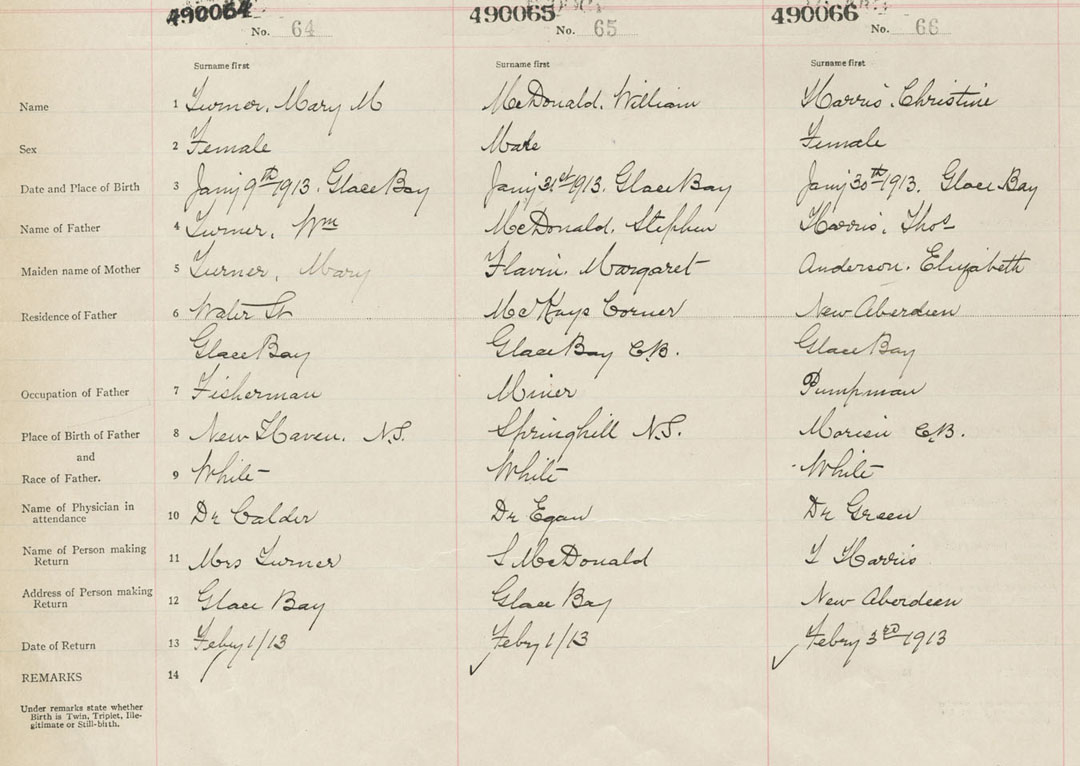 490064 490065 490066
No. 64 No. 65 No. 66
Surname first Surname first Surname first
Name 1 Turner, Mary M McDonald, William Harris, Christine
Sex 2 Female Male Female
Date and Place of Birth 3 Jany 9th 1913. Glace Bay Jany 31st 1913. Glace Bay Jany 30th 1913. Glace Bay
Name of Father 4 Turner, Wm McDonald, Stephen Harris, Thos
Maiden name of Mother 5 Turner, Mary Flavin, Margaret Anderson, Elizabeth
Residence of Father 6 Water St McKays Corner New Aberdeen
Glace Bay Glace Bay C.B. Glace Bay
Occupation of Father 7 Fisherman Miner Pumpman
Place of Birth of Father 8 New Haven. N.S. Springhill N.S. Morien C.B.
and
Race of Father. 9 White White White
Name of Physician in attendance 10 Dr Calder Dr Egan Dr Green
Name of Person making Return 11 Mrs Turner S McDonald T Harris
Address of Person making Return 12 Glace Bay Glace Bay New Aberdeen
Date of Return 13 Feby 1/13 Feby 1/13 Febry 3rd 1913
REMARKS 14
Under remarks state whether
Birth is Twin, Triplet, Ille-
gitimate or Still-birth.